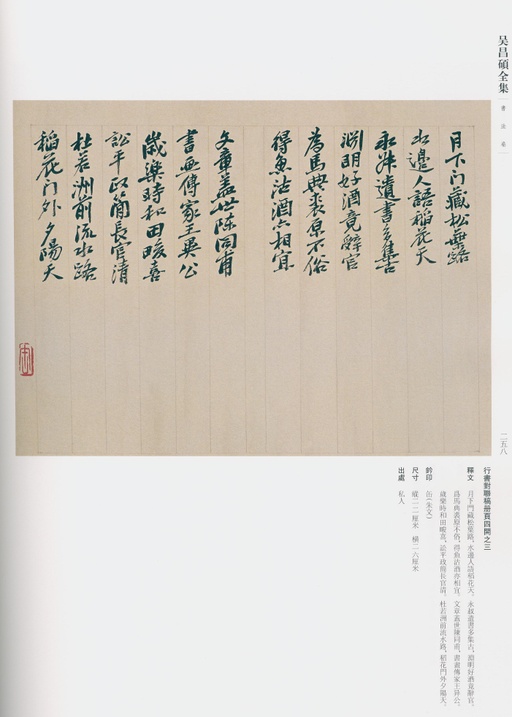 吴昌碩全集
書法卷
二五八
月下门藏松葉路
水邊人語稻花天
永叔遺書多集古
淵明好酒竟辭官
為馬典裘原不俗
得魚沽酒亦相宜
文章蓋世陳同甫
書畫傳家王異公
歲樂時和田畯喜
訟平政簡長官清
杜若洲前流水路
稻花门外夕陽天
行書對聯稿册頁四開之三
釋文 月下門藏松葉路，水邊人語稻花天。永叔遺書多集古，淵明好酒竟辭官。
爲馬典裘原不俗，得魚沽酒亦相宜。文章蓋世陳同甫，書畫傳家王异公。
歲樂時和田畯喜，訟平政簡長官清。杜若洲前流水路，稻花門外夕陽天。
鈐印 缶（朱文）
尺寸 縱二二厘米 横二六厘米
出處 私人